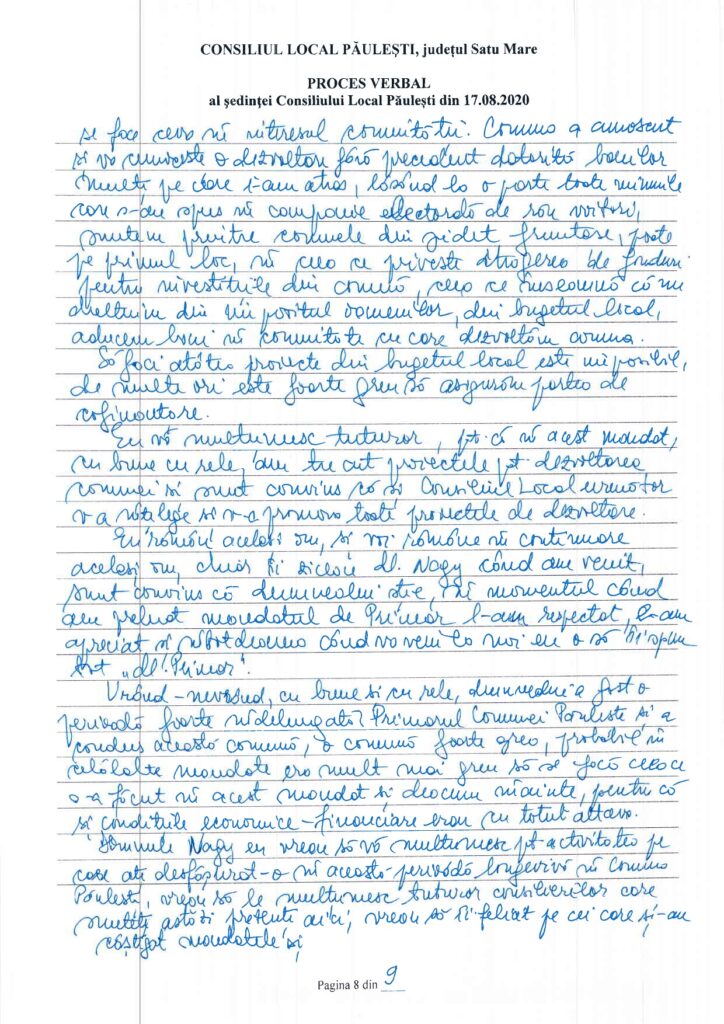 CONSILIUL LOCAL PĂULEȘTI, județul Satu Mare
PROCES VERBAL
al ședinței Consiliului Local Păulești din 17.08.2020
se face ceva în interesul comunității. Comuna a cunoscut
și va cunoaște o dezvoltare fără precedent datorită banilor
mulți pe care i-am atras, lăsând la o parte toate minunile
care s-au spus în campanie electorală de rău voitori,
suntem printre comunele din județ fruntașe, poate
pe primul loc, în ceea ce privește atragerea de fonduri
pentru investițiile din comună, ceea ce înseamnă că nu
cheltuim din impozitul oamenilor, din bugetul local,
aducem bani în comunitate cu care dezvoltăm comuna.
Să faci atâtea proiecte din bugetul local este imposibil,
de multe ori este foarte greu să asigurăm partea de
cofinanțare.
Eu vă mulțumesc tuturor, pt. că în acest mandat,
cu bune cu rele, am trecut proiectele pt. dezvoltarea
comunei și sunt convins că și Consiliul Local următor
va înțelege și va promova toate proiectele de dezvoltare.
Eu rămân același om, și voi rămâne în continuare
același om, chiar îi ziceam dl. Nagy când am venit,
sunt convins că dumnealui știe, în momentul când
am preluat mandatul de Primar l-am respectat, l-am
apreciat și întotdeauna când va veni la noi eu o să îi spun
tot „dl. Primar".
Vrând-nevrând, cu bune și cu rele, dumnealui a fost o
perioadă foarte îndelungată Primarul Comunei Păulești și a
condus această comună, o comună foarte grea, probabil în
celelalte mandate era mult mai greu să se facă ceea ce
s-a făcut în acest mandat și de acum înainte, pentru că
și condițiile economice-financiare erau cu totul altele.
Domnule Nagy eu vreau să vă mulțumesc pt. activitatea pe
care ați desfășurat-o în această perioadă longevivă în Comuna
Păulești, vreau să le mulțumesc tuturor consilierilor care
sunteți astăzi prezenți aici, vreau să îi felicit pe cei care și-au
câștigat mandatele și
Pagina 8 din 9